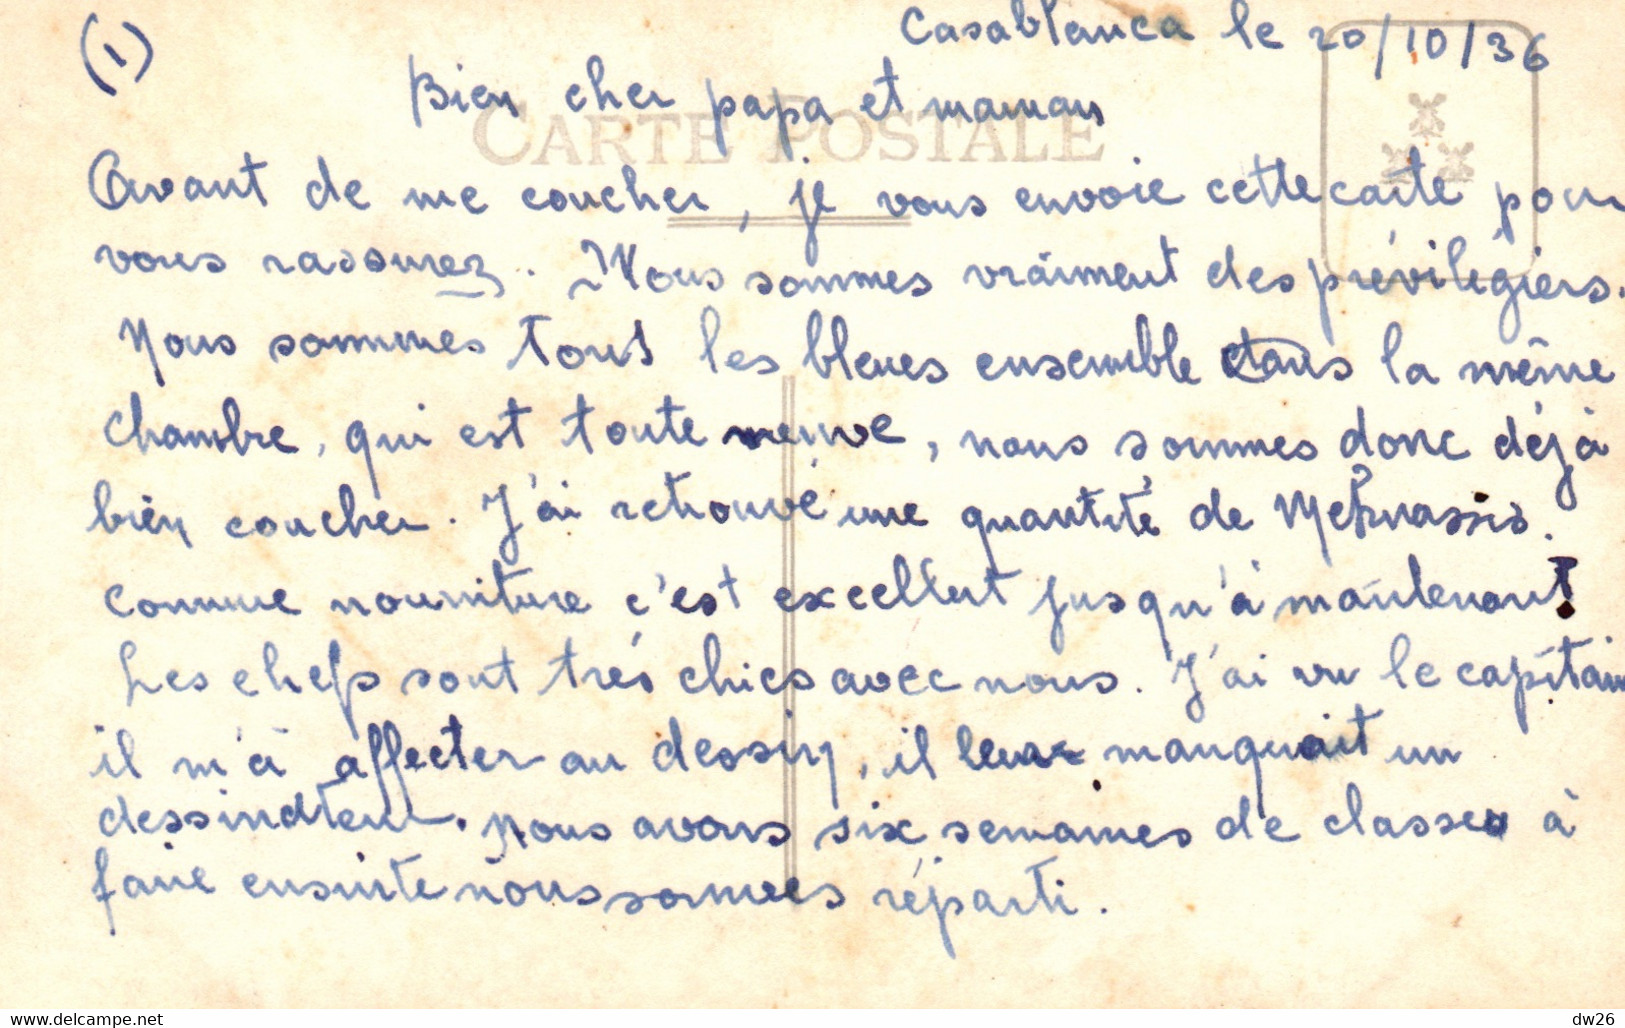 (1)
Casablanca le 20/10/36
Bien cher papa et maman
CARTE POSTALE
Avant de me coucher, je vous envoie cette carte pour
vous rassurez. Nous sommes vraiment des prévilégiers.
Nous sommes tous les bleues ensemble dans la même
chambre, qui est toute neuve, nous sommes donc déjà
bien coucher. J'ai retrouvé une quantité de Meknassis.
comme nourriture c'est excellent jusqu'à maintenant!
Les chefs sont très chics avec nous. J'ai vu le capitain
il m'a affecter au dessin, il leur manquait un
dessinateur. Nous avons six semaines de classes à
faire ensuite nous sommes réparti.
www.delcampe.net
dw26